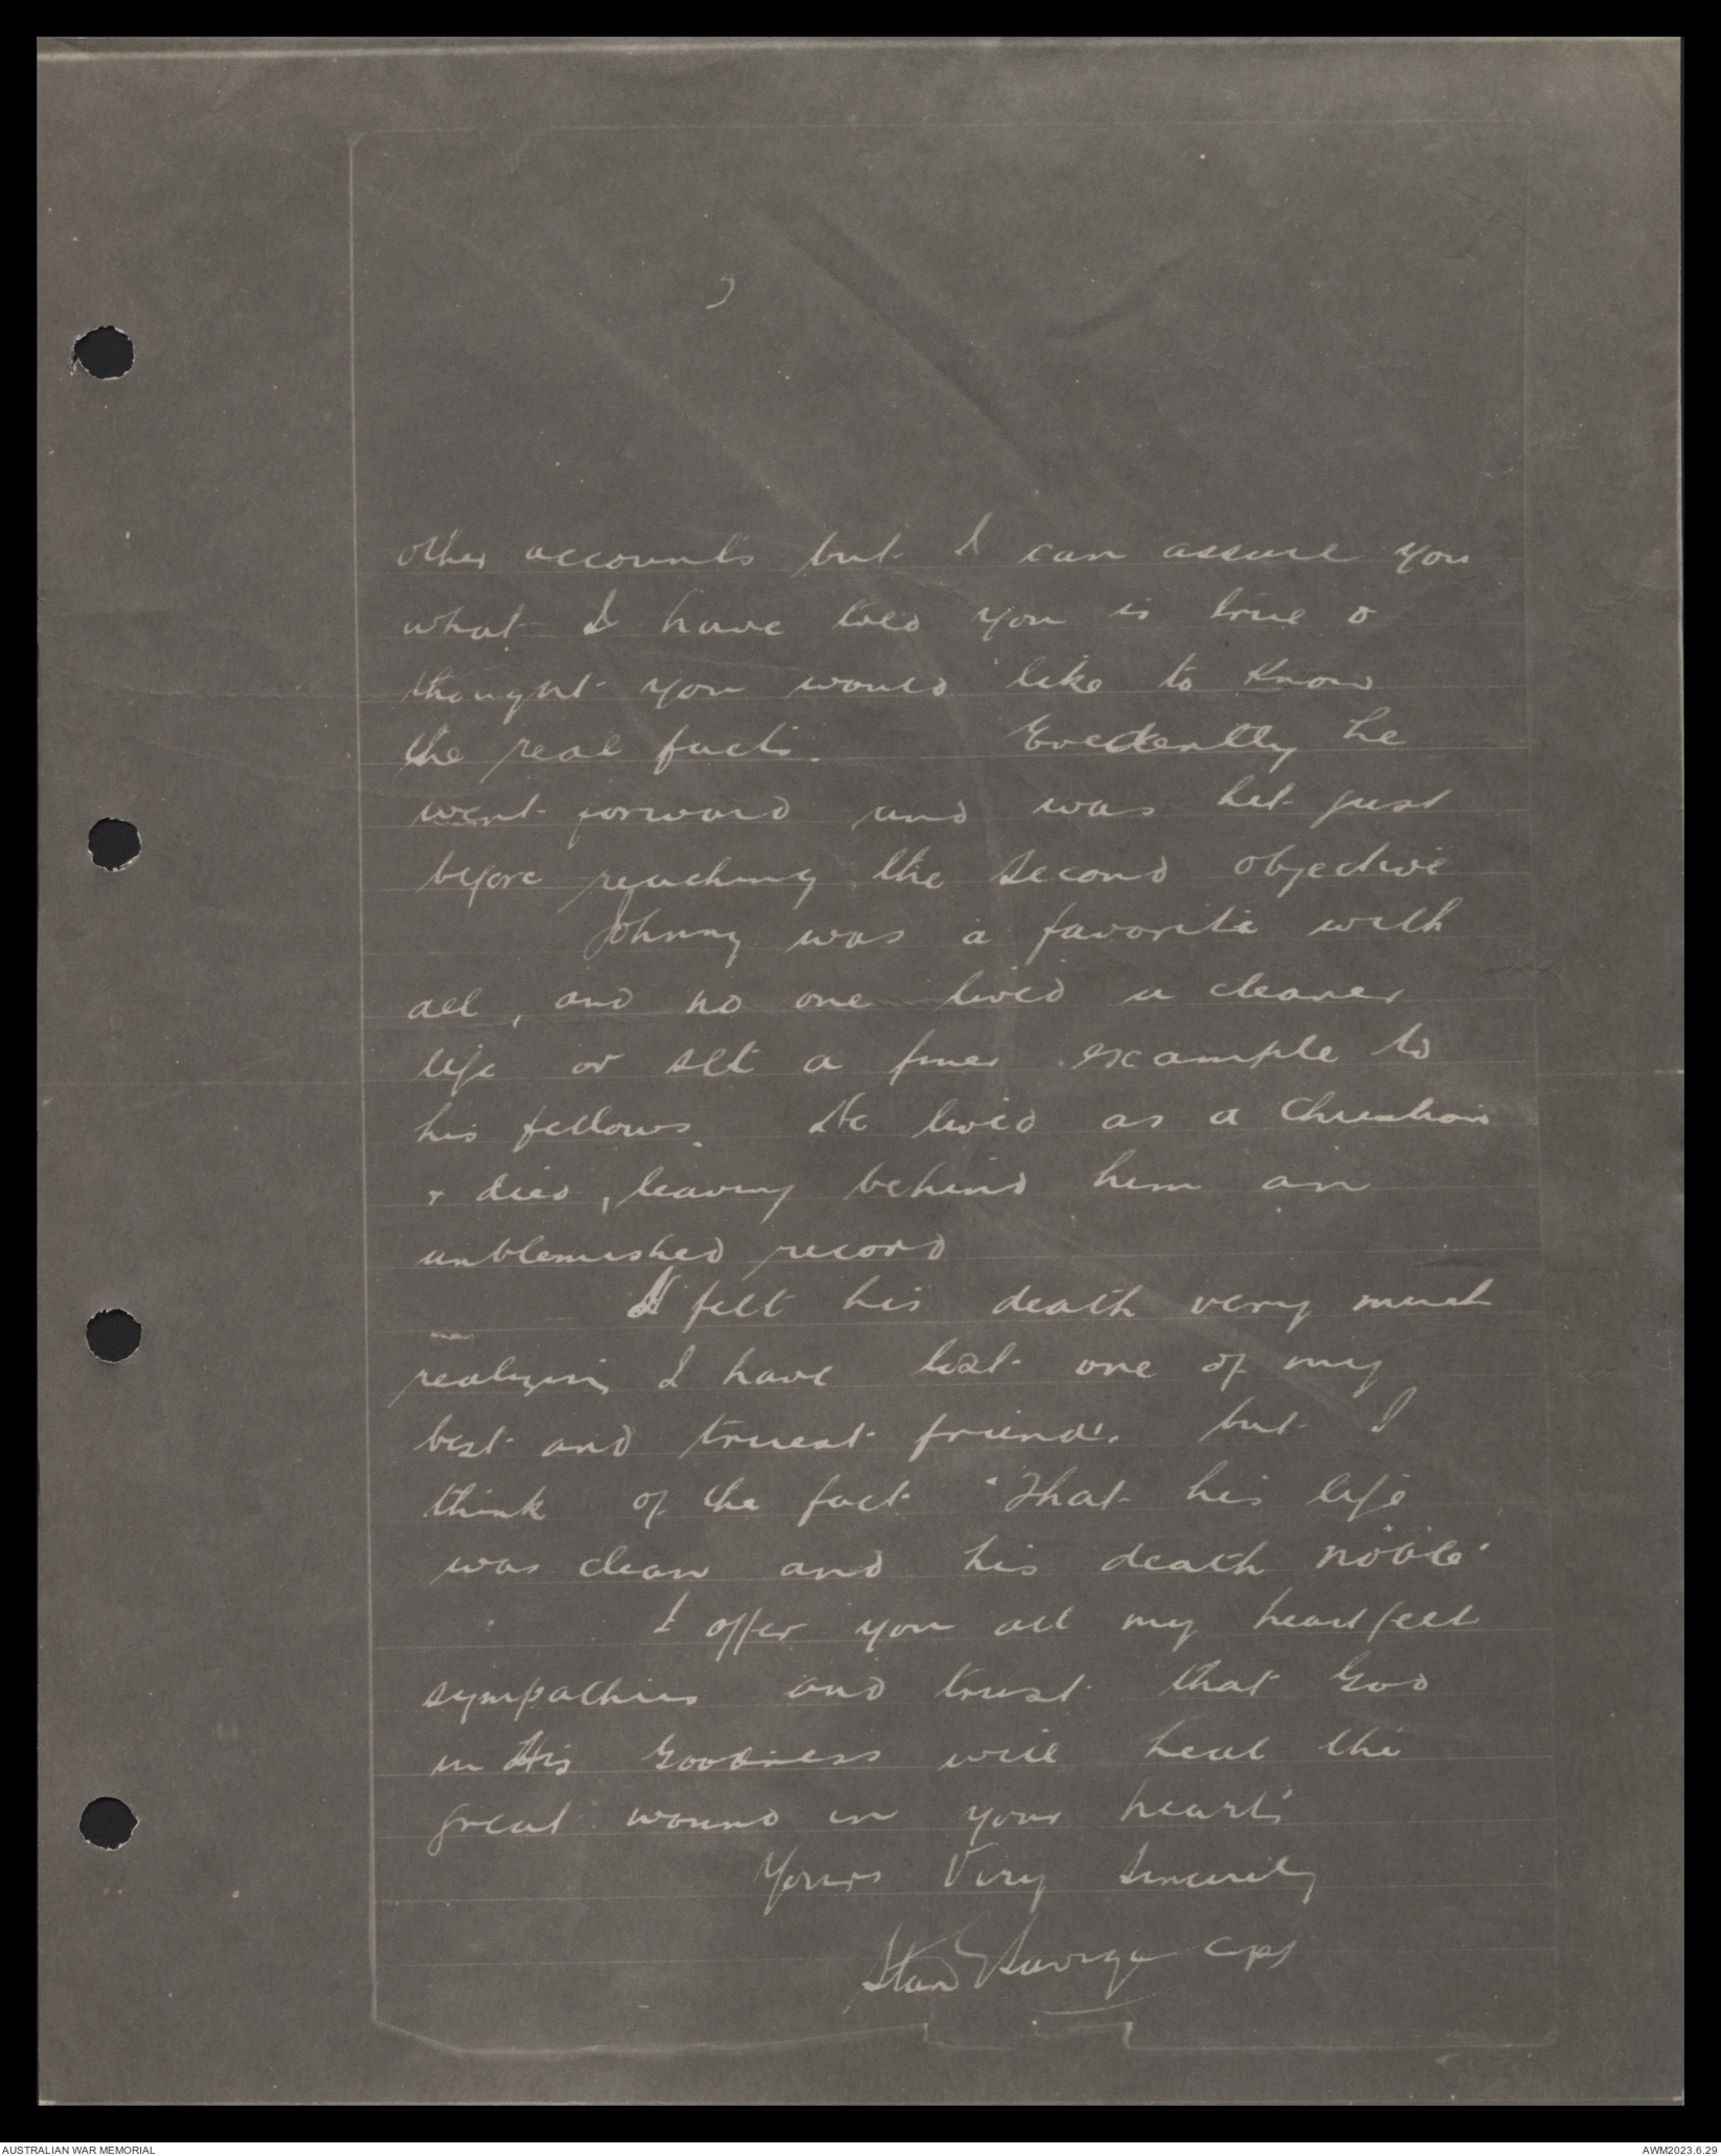 other accounts but I can assure you
what I have told you is true &
thought you would like to know
the real facts. Evidently he
went forward and was hit just
before reaching the second objective
Johnny was a favorite with
all, and no one lived a cleaner
life or set a finer example to
his fellows. He lived as a Christian
& died, leaving behind him an
unblemished record
I felt his death very much
realizing I have lost one of my
best and truest friends. but I
think of the fact "That his life
was clean and his death noble"
I offer you all my heartfelt
sympathies and trust that God
in His Goodness will heal the
great wound in your hearts
Yours Very Sincerely
Stan Savige Capt
AUSTRALIAN WAR MEMORIAL
AWM2023.6.29